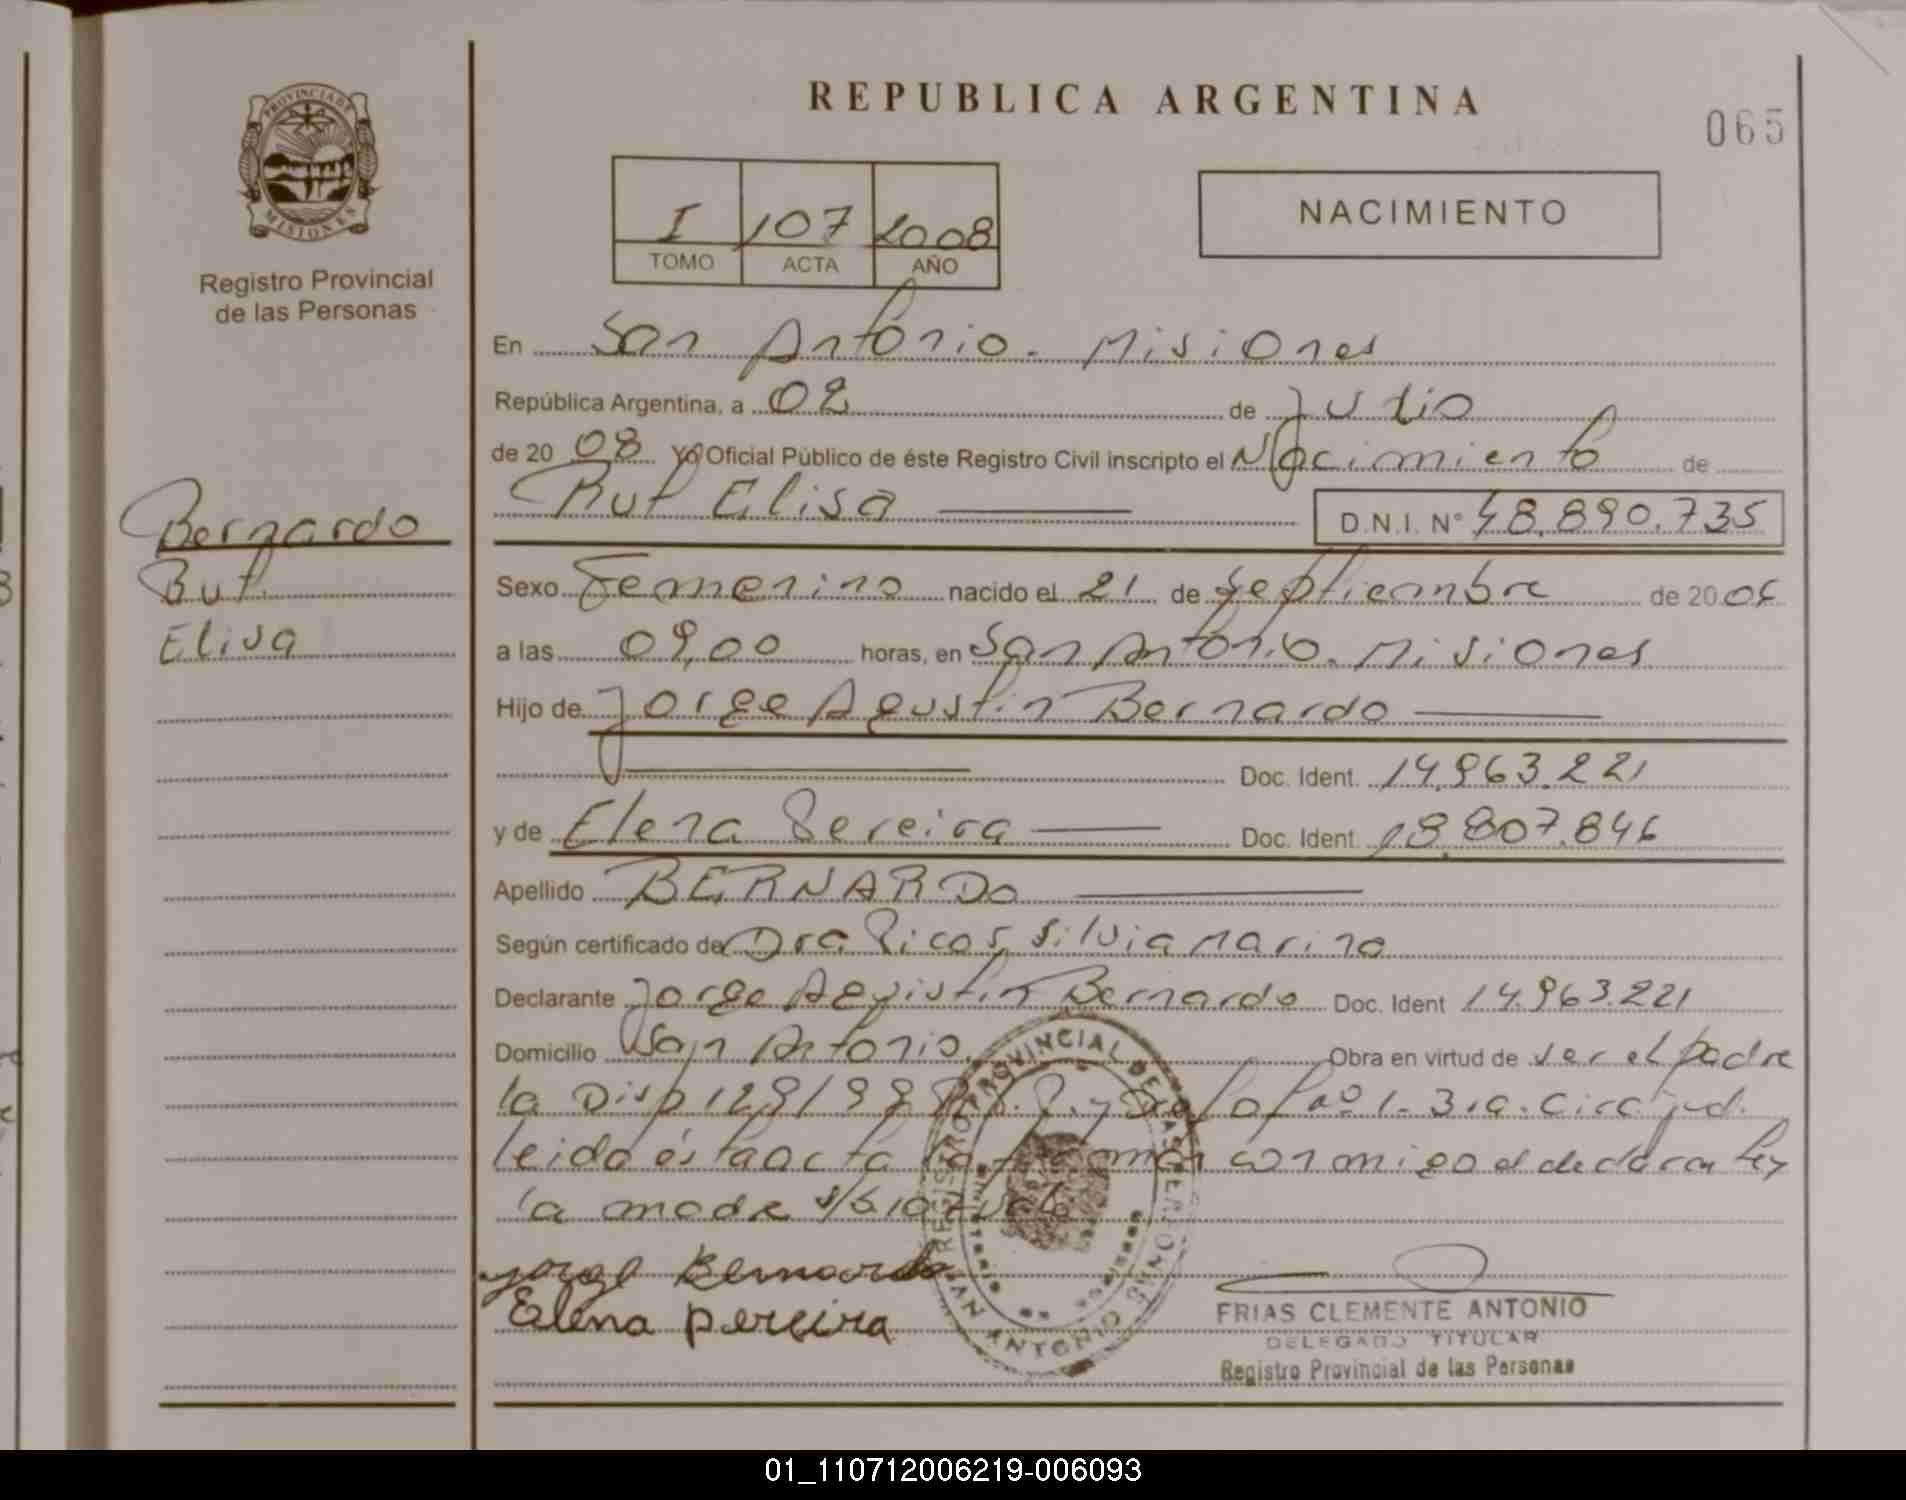 PROVINCIA DE
MISIONES
Registro Provincial
de las Personas
Bernardo
Rut
Elisa
REPUBLICA ARGENTINA
065
I 107 2008
TOMO ACTA AÑO
NACIMIENTO
En San Antonio - Misiones
República Argentina, a 02 de Julio
de 20 08 Yo Oficial Público de éste Registro Civil inscripto el Nacimiento de
Rut Elisa D.N.I. N° 48.890.735
Sexo Femenino nacido el 21 de Septiembre de 20
a las 09,00 horas, en San Antonio. Misiones
Hijo de Jorge Agustin Bernardo
Doc. Ident. 14.963.221
y de Elena Pereira Doc. Ident. 18.807.846
Apellido BERNARDO
Según certificado de Dra Silvia Marina
Declarante Jorge Agustin Bernardo Doc. Ident 14.963.221
Domicilio San Antonio. Obra en virtud de ser el padre
la Disp 129/99
leido ésta acta la firman conmigo el declarante y
la madre
Jorge Bernardo
Elena pereira
REGISTRO PROVINCIAL DE LAS PERSONAS
SAN ANTONIO
FRIAS CLEMENTE ANTONIO
DELEGADO TITULAR
Registro Provincial de las Personas
01_110712006219-006093